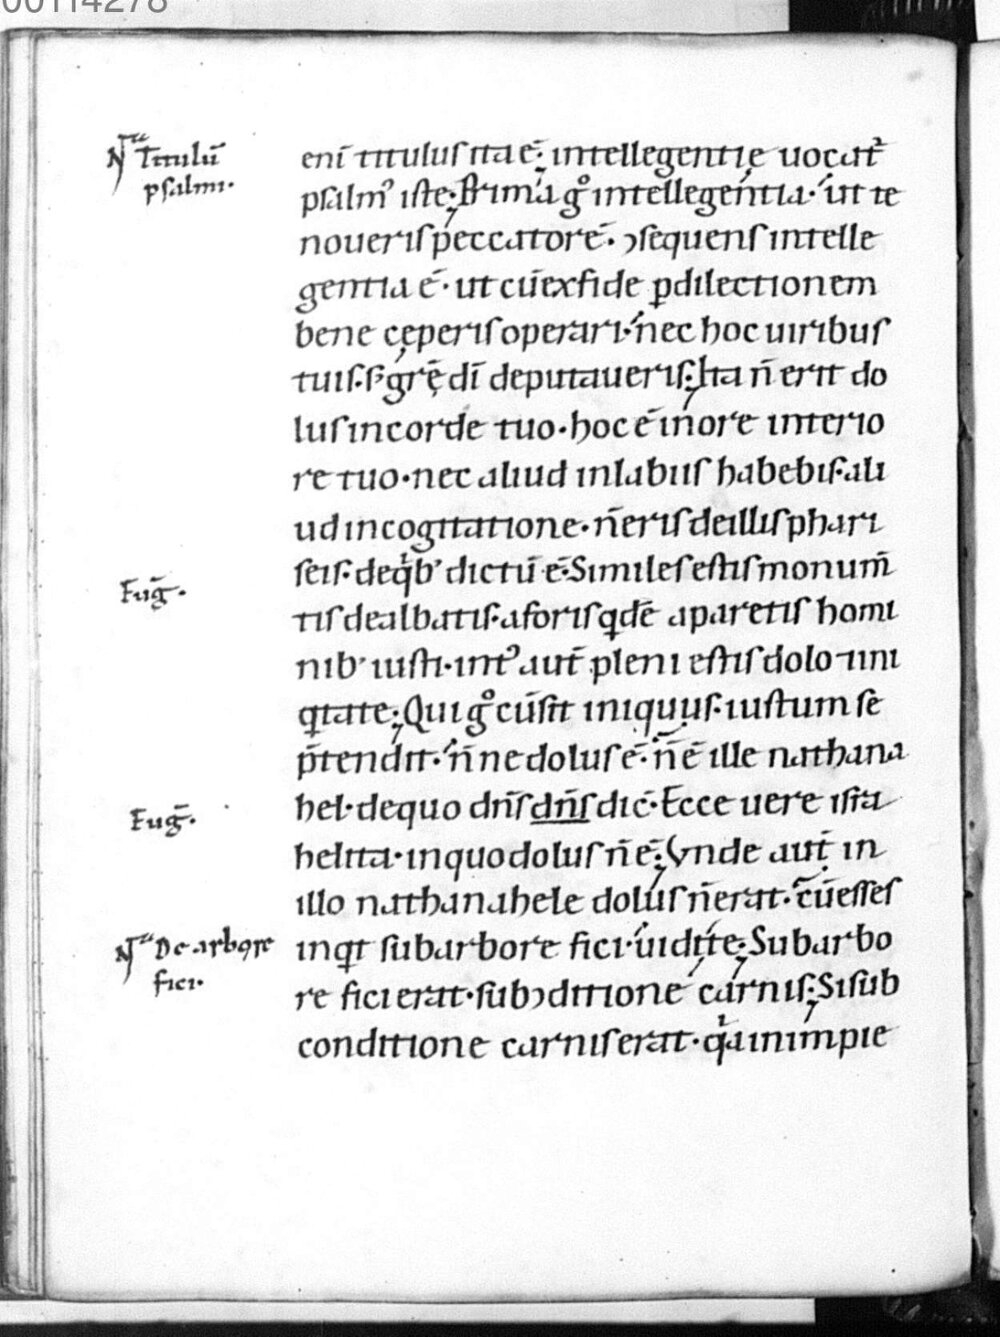 00114278
Nͣ Titulū
psalmi·
enī titulus ita ē; intellegentię uocat᷑
psalm᾽ iste; Prima gͦ intellegentia· ut te
noueris peccatorē· ↄsequens intelle
gentia ē· ut cū ex fide ꝑ dilectionem
bene cęperis operari· nec hoc uiribus
tuis· s; grę̄ dī deputaueris; Ita n̄ erit do
lus in corde tuo· hoc ē in ore interio
re tuo· nec aliud in labiis habebis· ali
ud in cogitatione· n̄ eris de illis phari
seis· de qͥb᾽ dictū ē· Similes estis monum̄
Euḡ·
tis dealbatis· a foris qͥdē aparetis homi
nib᾽ iusti· int᾽ aut̄ pleni estis dolo ⁊ ini
qͥtate; Qui gͦ cū sit iniquus· iustum se
p̄tendit· n̄ne dolus ē· n̄ ē ille nathana
hel· de quo dn̄s dn̄s dic̄· Ecce uere isra
Euḡ·
helita· in quo dolus n̄ ē; Vnde aut̄ in
illo nathanahele dolus n̄ erat· cū esses
inqͥt sub arbore fici· uidi te; Sub arbo
Nͣ De arbore
fici·
re fici erat· sub ↄditione carnis; Si sub
conditione carnis erat· qͥa in impie